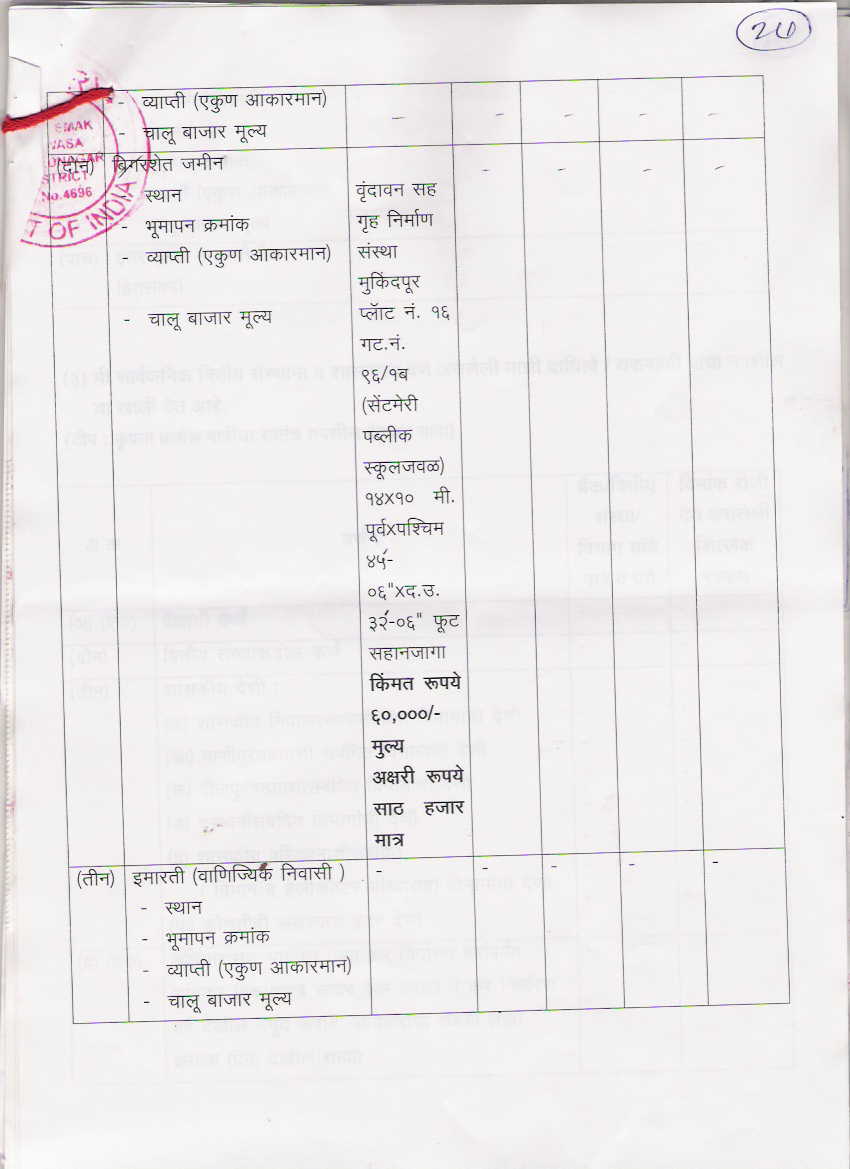 व्याप्ती (एकुण आकारमान) - - - - -
- चालू बाजार मूल्य
(दोन) बिगरशेत जमीन - - - -
- स्थान
- भूमापन क्रमांक
- व्याप्ती (एकुण आकारमान)
- चालू बाजार मूल्य
वृंदावन सह
गृह निर्माण
संस्था
मुकिंदपूर
प्लॉट नं. १६
गट.नं.
९६/१ब
(सेंटमेरी
पब्लीक
स्कूलजवळ)
१४x१० मी.
पूर्वxपश्चिम
४५'-
०६"xद.उ.
३२'-०६" फूट
सहानजागा
किंमत रूपये
६०,०००/-
मुल्य
अक्षरी रूपये
साठ हजार
मात्र
(तीन) इमारती (वाणिज्यिक निवासी ) - - - - -
- स्थान
- भूमापन क्रमांक
- व्याप्ती (एकुण आकारमान)
- चालू बाजार मूल्य
NAGAR
STRICT
No.4696
T OF INDIA